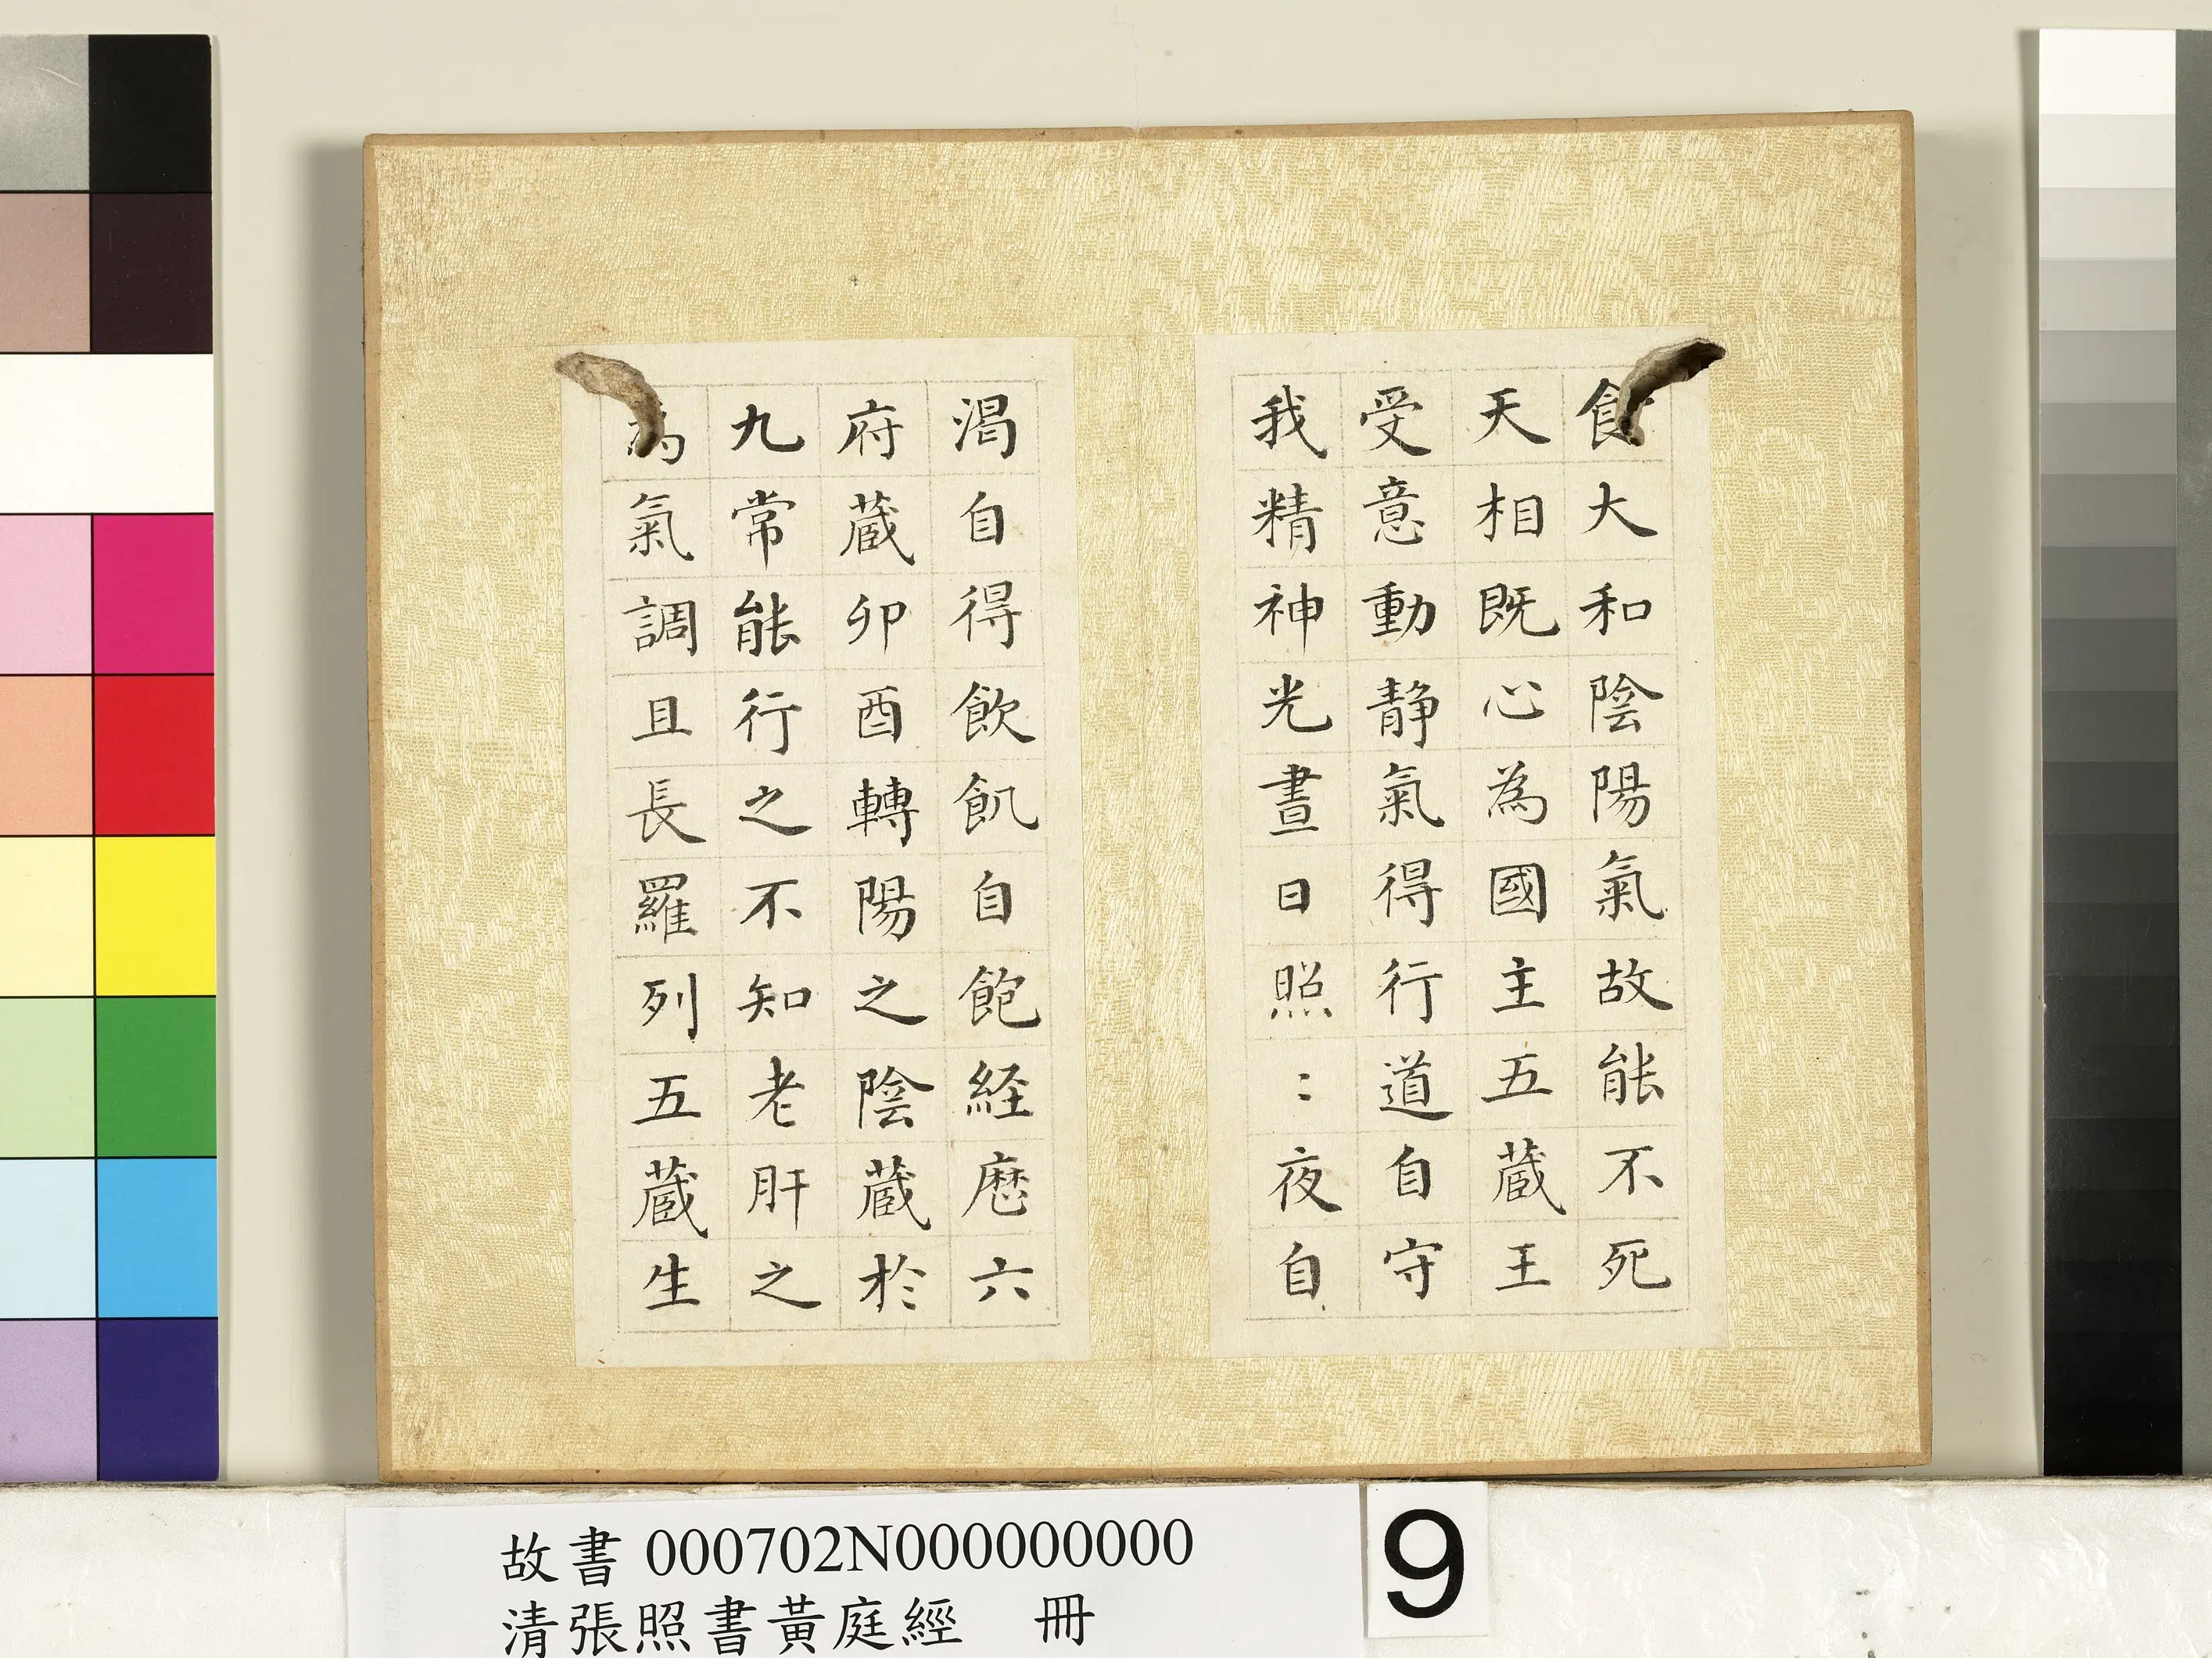 食大和陰陽氣故能不死
天相既心為國主五蔵王
受意動静氣得行道自守
我精神光晝日照〻夜自
渴自得飲飢自飽経歴六
府蔵卯酉轉陽之陰蔵於
九常能行之不知老肝之
氣調且長羅列五蔵生
故書 000702N000000000
清張照書黃庭經 冊
9